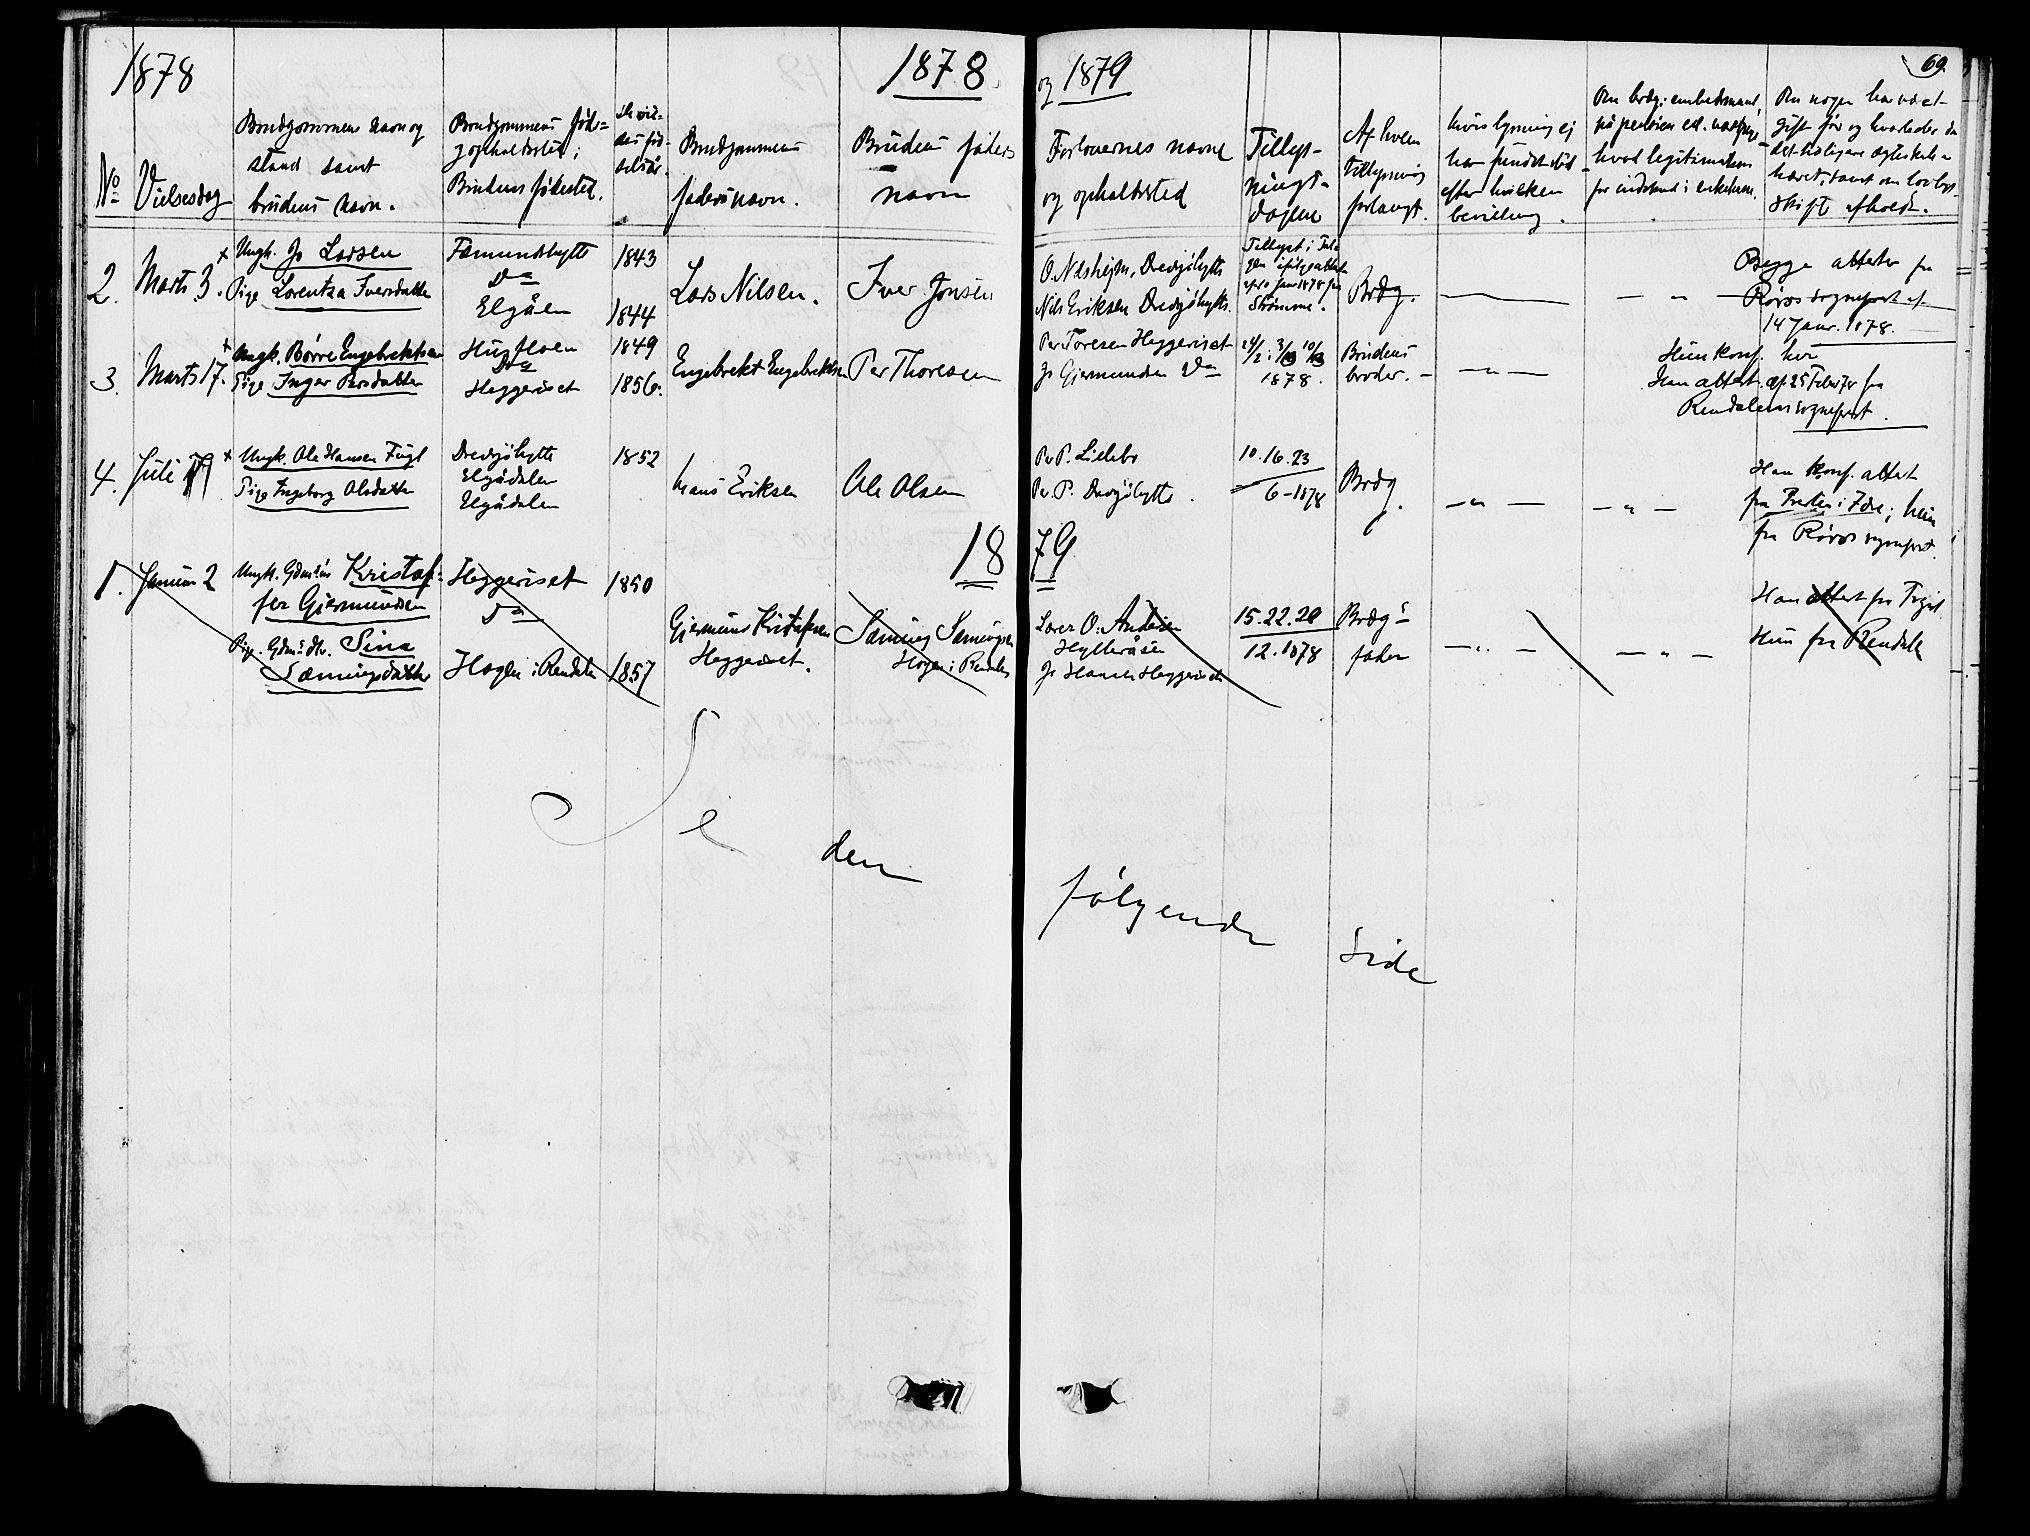 1878
1878
og 1879
69.
No
Vielsesdag
Brudgommens navn og
stand samt
brudens navn.
Brudgommens føde=
g opholdssted;
Brudens fødested.
De vie=
des fød=
selsår.
Brudgommens
faders navn.
Brudens faders
navn
Forlovernes navne
og opholdssted
Tillys-
nings-
dagene
Af hvem
tillysning
forlangt.
hvis lysning ej
har fundet sted
efter hvilken
bevilling.
Om brdg: embedsmand,
hvad legitimation
for indskud i enkekassen.
Om nogen har været
gift før og hvorledes
skifte afholdt.
2. Marts 3.
Ungk. Jo Larsen
Pige Lorentza Iversdatter
Fæmundshytte
Do
Elgåen
1843
1844
Lars Nilsen.
Iver Jonsen
Nils Eriksen Drevsjøhytte
Tillyst i
Strømme.
Brdg.
— " —
Begge attester fra
Røros sognepræst af
14 Janr. 1878.
3. Marts 17.
Ungk. Børre Engebrektsen
Pige Inger Persdatter
Hugfloen
Do
Heggeriset
1849
1856.
Engebrekt Engebrektsen
Per Thoresen
Per Toresen Heggeriset
Jo Gjermundsen Do
24/2. 3/3 10/3
1878.
Brudens
broder.
— " —
Hun konf. her
Han attest. af 25 Febr 78 fra
Rendalens sognepræst.
4. Juli
Ungk. Ole Hansen Fugl
Pige Ingeborg Olsdatter
Drevsjøhytte
Elgådalen
Elgådalen
1852
Hans Eriksen
Ole Olsen
Per P. Lillebo
Per P. Drevsjøhytte.
10. 16. 23
6-1878
Brdg.
— " —
— " —
Han konf. attest
fra Præsten i Idre; hun
fra Røros sognepræst.
18 79
1. Januar 2
Ungk. Gdms søn Kristof=
fer Gjermundsen
Pige. Gdms dtr. Sina
Sæmingsdatter
Heggeriset
Do
Hagen i Rendalen
1850
1857
Gjermund Kristofersen
Heggeriset.
Sæming Sæmingsen
Hagen i Rendalen
Lars O: Andersen
Hylleråsen
Jo Hansen Heggeriset
15. 22. 29
12. 1878
Brdgs
fader
— " —
— " —
Han attest fra Trysil
Hun fra Rendalen
Se
den
følgende
Side